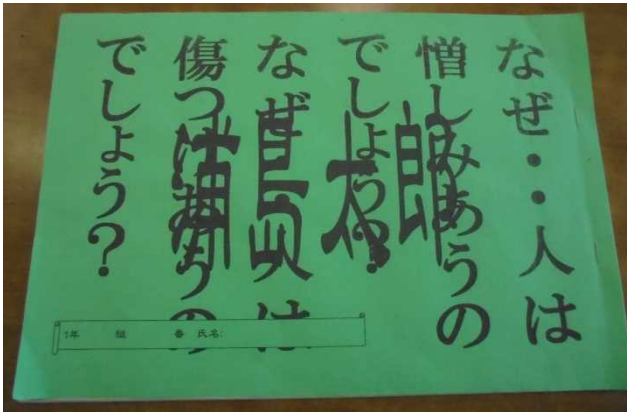 なぜ・・人は
憎しみあうの
でしょう？
なぜ人は
傷つけあうの
でしょう？
浦島太郎
1年　組　番　氏名: